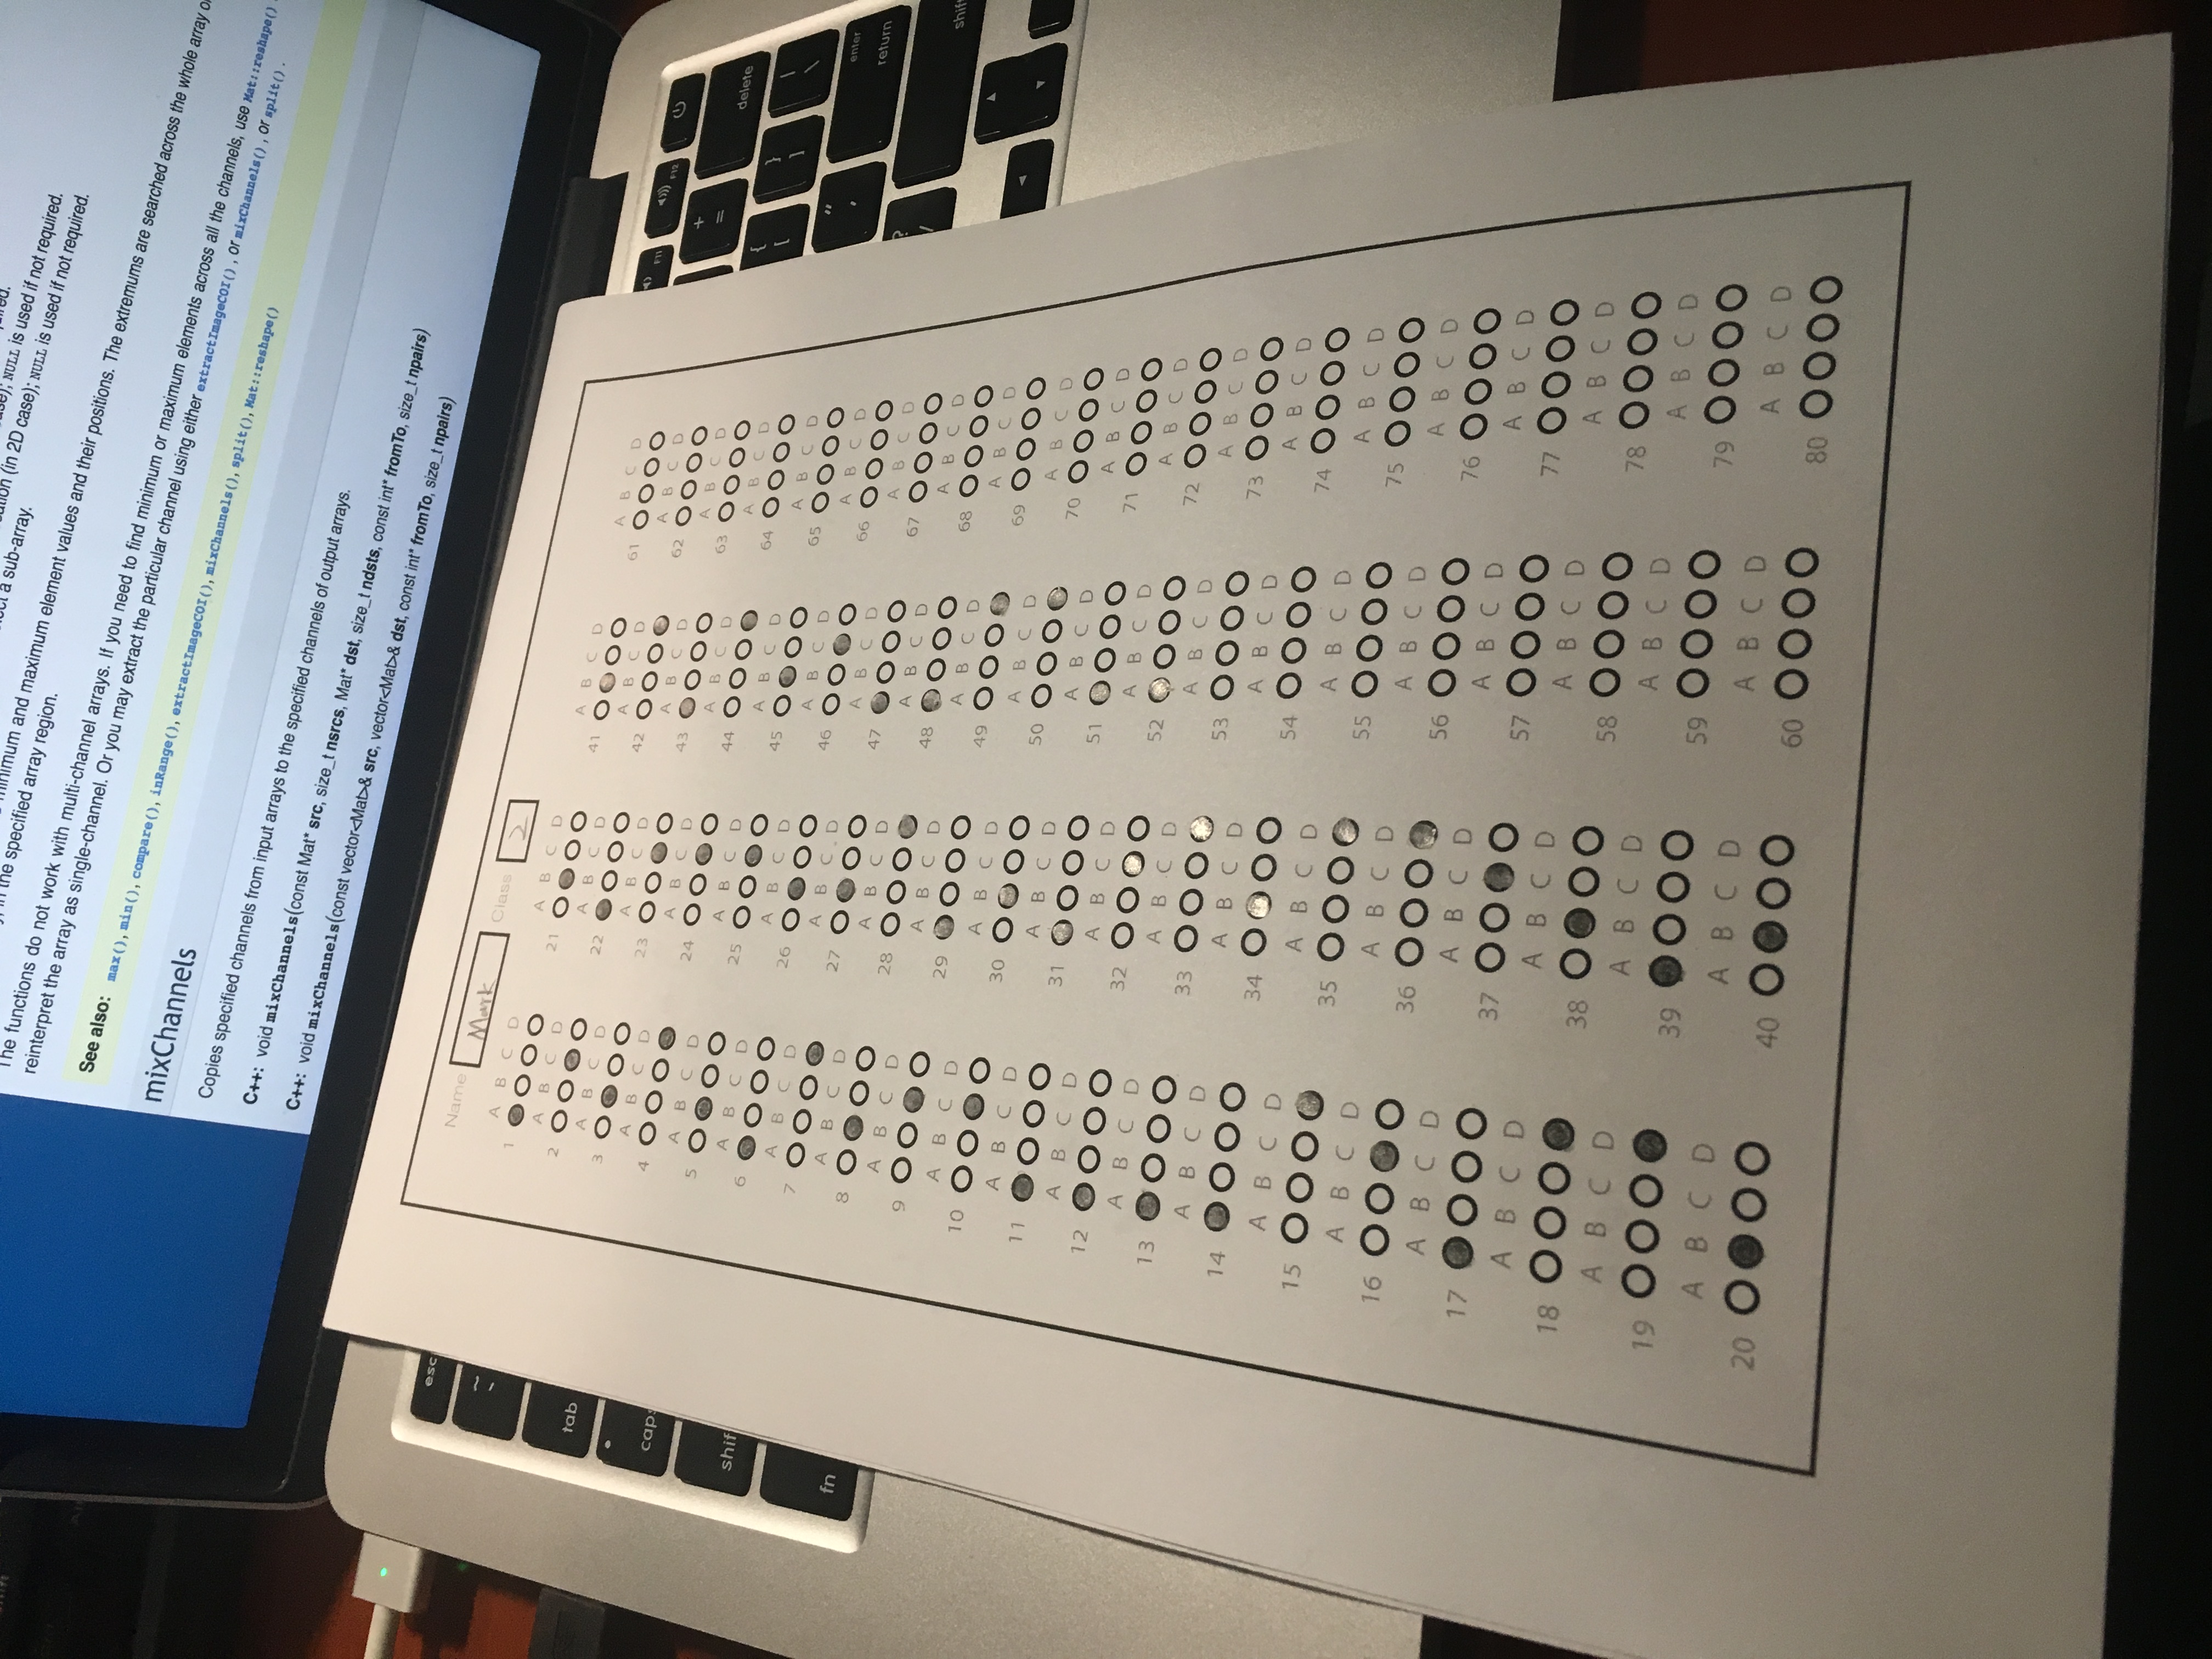 ired.
ase); NULL is used if not required.
ation (in 2D case); NULL is used if not required.
a sub-array.
minimum and maximum element values and their positions. The extremums are searched across the whole array or
in the specified array region.
The functions do not work with multi-channel arrays. If you need to find minimum or maximum elements across all the channels, use Mat::reshape()
reinterpret the array as single-channel. Or you may extract the particular channel using either extractImageCOI() , or mixChannels() , or split() .
See also: max(), min(), compare(), inRange(), extractImageCOI(), mixChannels(), split(), Mat::reshape()
mixChannels
Copies specified channels from input arrays to the specified channels of output arrays.
C++: void mixChannels(const Mat* src, size_t nsrcs, Mat* dst, size_t ndsts, const int* fromTo, size_t npairs)
C++: void mixChannels(const vector<Mat>& src, vector<Mat>& dst, const int* fromTo, size_t npairs)
esc
~
tab
caps
shif
fn
F11
F12
+
=
delete
{
[
}
]
|
\
"
'
enter
return
?
/
shift
Name Mark Class 2
A B C D
1
A B C D
2
A B C D
3
A B C D
4
A B C D
5
A B C D
6
A B C D
7
A B C D
8
A B C D
9
A B C D
10
A B C D
11
A B C D
12
A B C D
13
A B C D
14
A B C D
15
A B C D
16
A B C D
17
A B C D
18
A B C D
19
A B C D
20
A B C D
21
A B C D
22
A B C D
23
A B C D
24
A B C D
25
A B C D
26
A B C D
27
A B C D
28
A B C D
29
A B C D
30
A B C D
31
A B C D
32
A B C D
33
A B C D
34
A B C D
35
A B C D
36
A B C D
37
A B C D
38
A B C D
39
A B C D
40
A B C D
41
A B C D
42
A B C D
43
A B C D
44
A B C D
45
A B C D
46
A B C D
47
A B C D
48
A B C D
49
A B C D
50
A B C D
51
A B C D
52
A B C D
53
A B C D
54
A B C D
55
A B C D
56
A B C D
57
A B C D
58
A B C D
59
A B C D
60
A B C D
61
A B C D
62
A B C D
63
A B C D
64
A B C D
65
A B C D
66
A B C D
67
A B C D
68
A B C D
69
A B C D
70
A B C D
71
A B C D
72
A B C D
73
A B C D
74
A B C D
75
A B C D
76
A B C D
77
A B C D
78
A B C D
79
A B C D
80